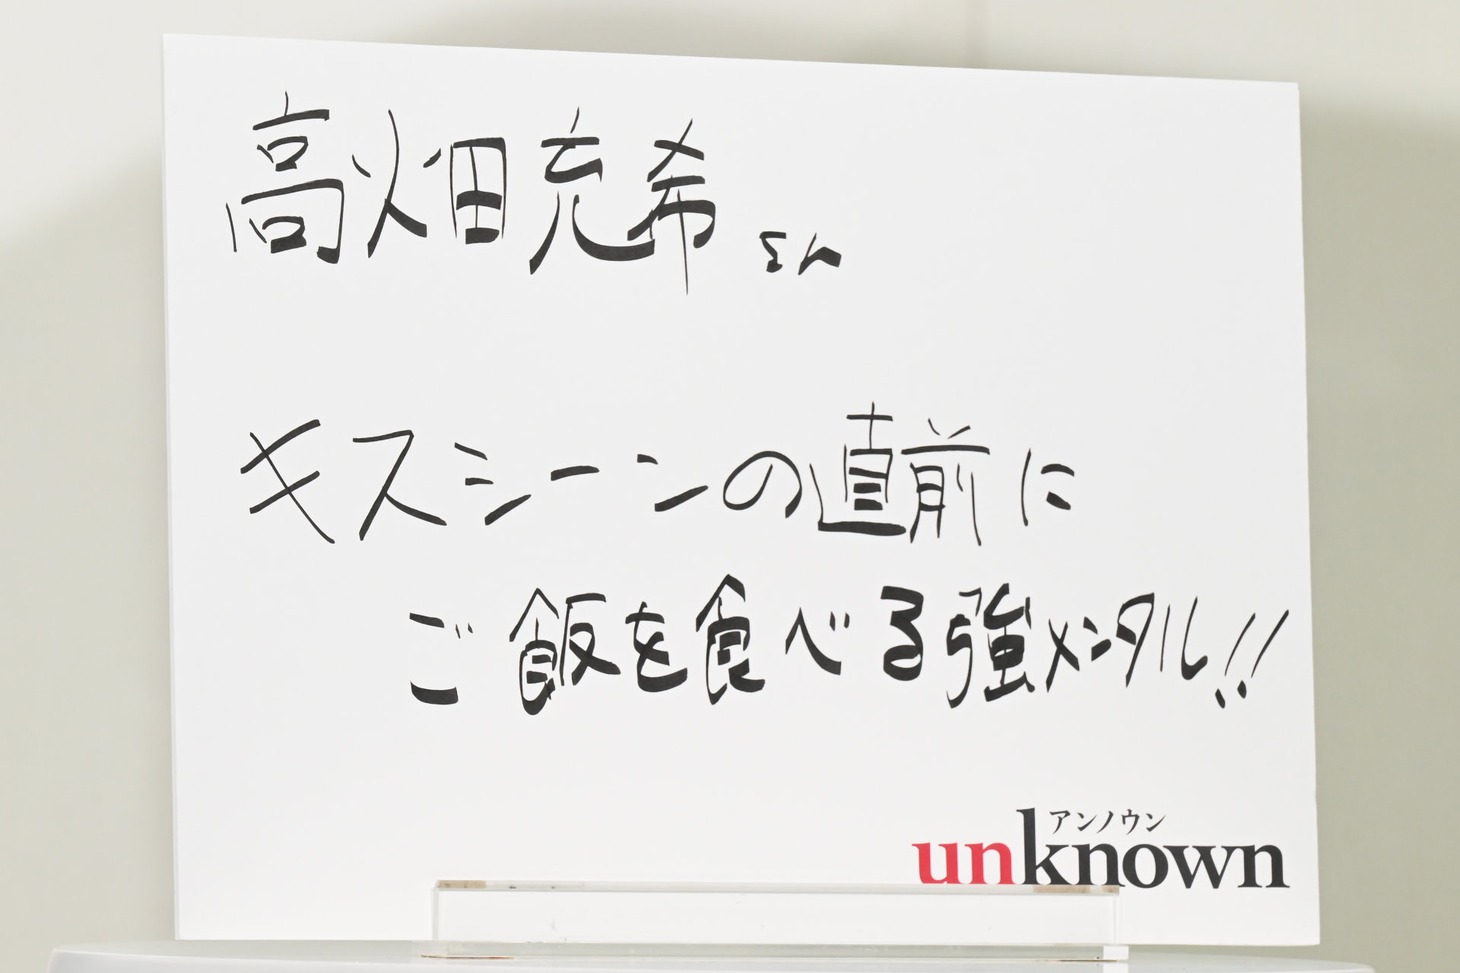 高畑充希さん
キスシーンの直前に
ご飯を食べる強メンタル!!
アンノウン
unknown